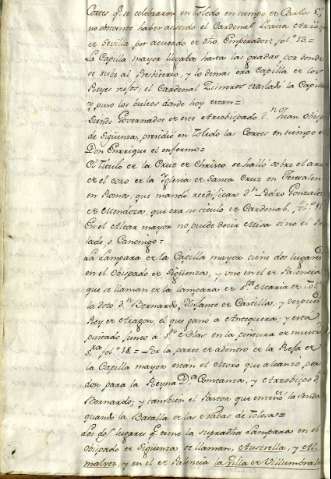 Cortes q.e se celebraron en Toledo en tiempo de Carlos
no obstante haver asistido el Cardenal
de Sevilla por acuerdo de dho Emperador fol. 13 =
La Capilla mayor llegaba hasta las gradas por donde
se sube al Presviterio, y lo demas era Capilla de los
Reyes el Cardenal Ximenez traslado la Capilla
y puso los bultos donde hoy estan =
Siendo Governador de este Arzobispado
de Siguenza, presidio en Toledo las Cortes en tiempo de
Don Enrrique el enfermo =
El Titulo de la Cruz de Christo se hallò sobre el arco
de el coro de la Iglesia de Santa Cruz en Jerusalem
en Roma, que mandó reedificar Dn Pedro Gonzalez
de Mendoza, que era su titulo de Cardenal. fol.
En el Altar mayor no puede decir Misa si no el
lado ò Canonigo =
La Lampara de la Capilla mayor tiene dos lugares
en el Obispado de Siguenza, y uno en el de Palencia
que se llaman de la lampara de Sta Maria
la doto Dn Fernando, Ynfante de Castilla, y despues
Rey de Aragon, el que ganó a Antequera, y está
pintado junto a Sn Blas en la pintura de nuestra
Sra fol. 18 = Por la parte de adentro de la Rexa de
la Capilla mayor estan el Moro que alcanzo per
don para la Reyna Da Constanza, y Arzobispo Dn
Bernardo, y tambien el Pastor que enseñó la senda
quando la Batalla de las Navas de Tolosa =
Los dos lugares q.e tiene la supradha Lampara en el
Obispado de Siguenza se llaman,
y en el de Palencia la Villa de Villumbrales